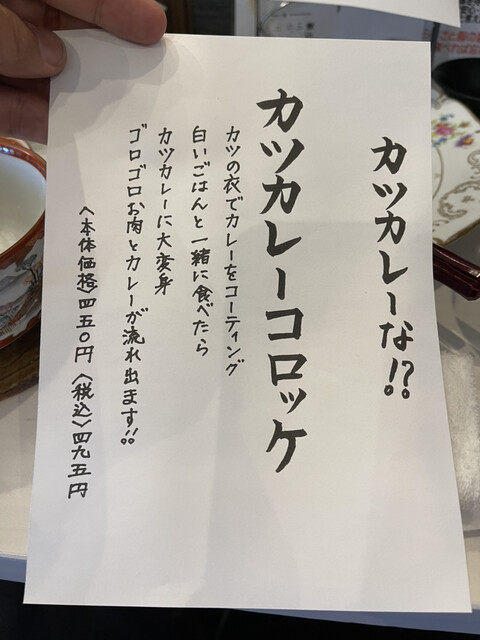 カツカレーな!?
カツカレーコロッケ
カツの衣でカレーをコーティング
白いごはんと一緒に食べたら
カツカレーに大変身
ゴロゴロお肉とカレーが流れ出ます!!
〈本体価格〉四五〇円〈税込〉四九五円